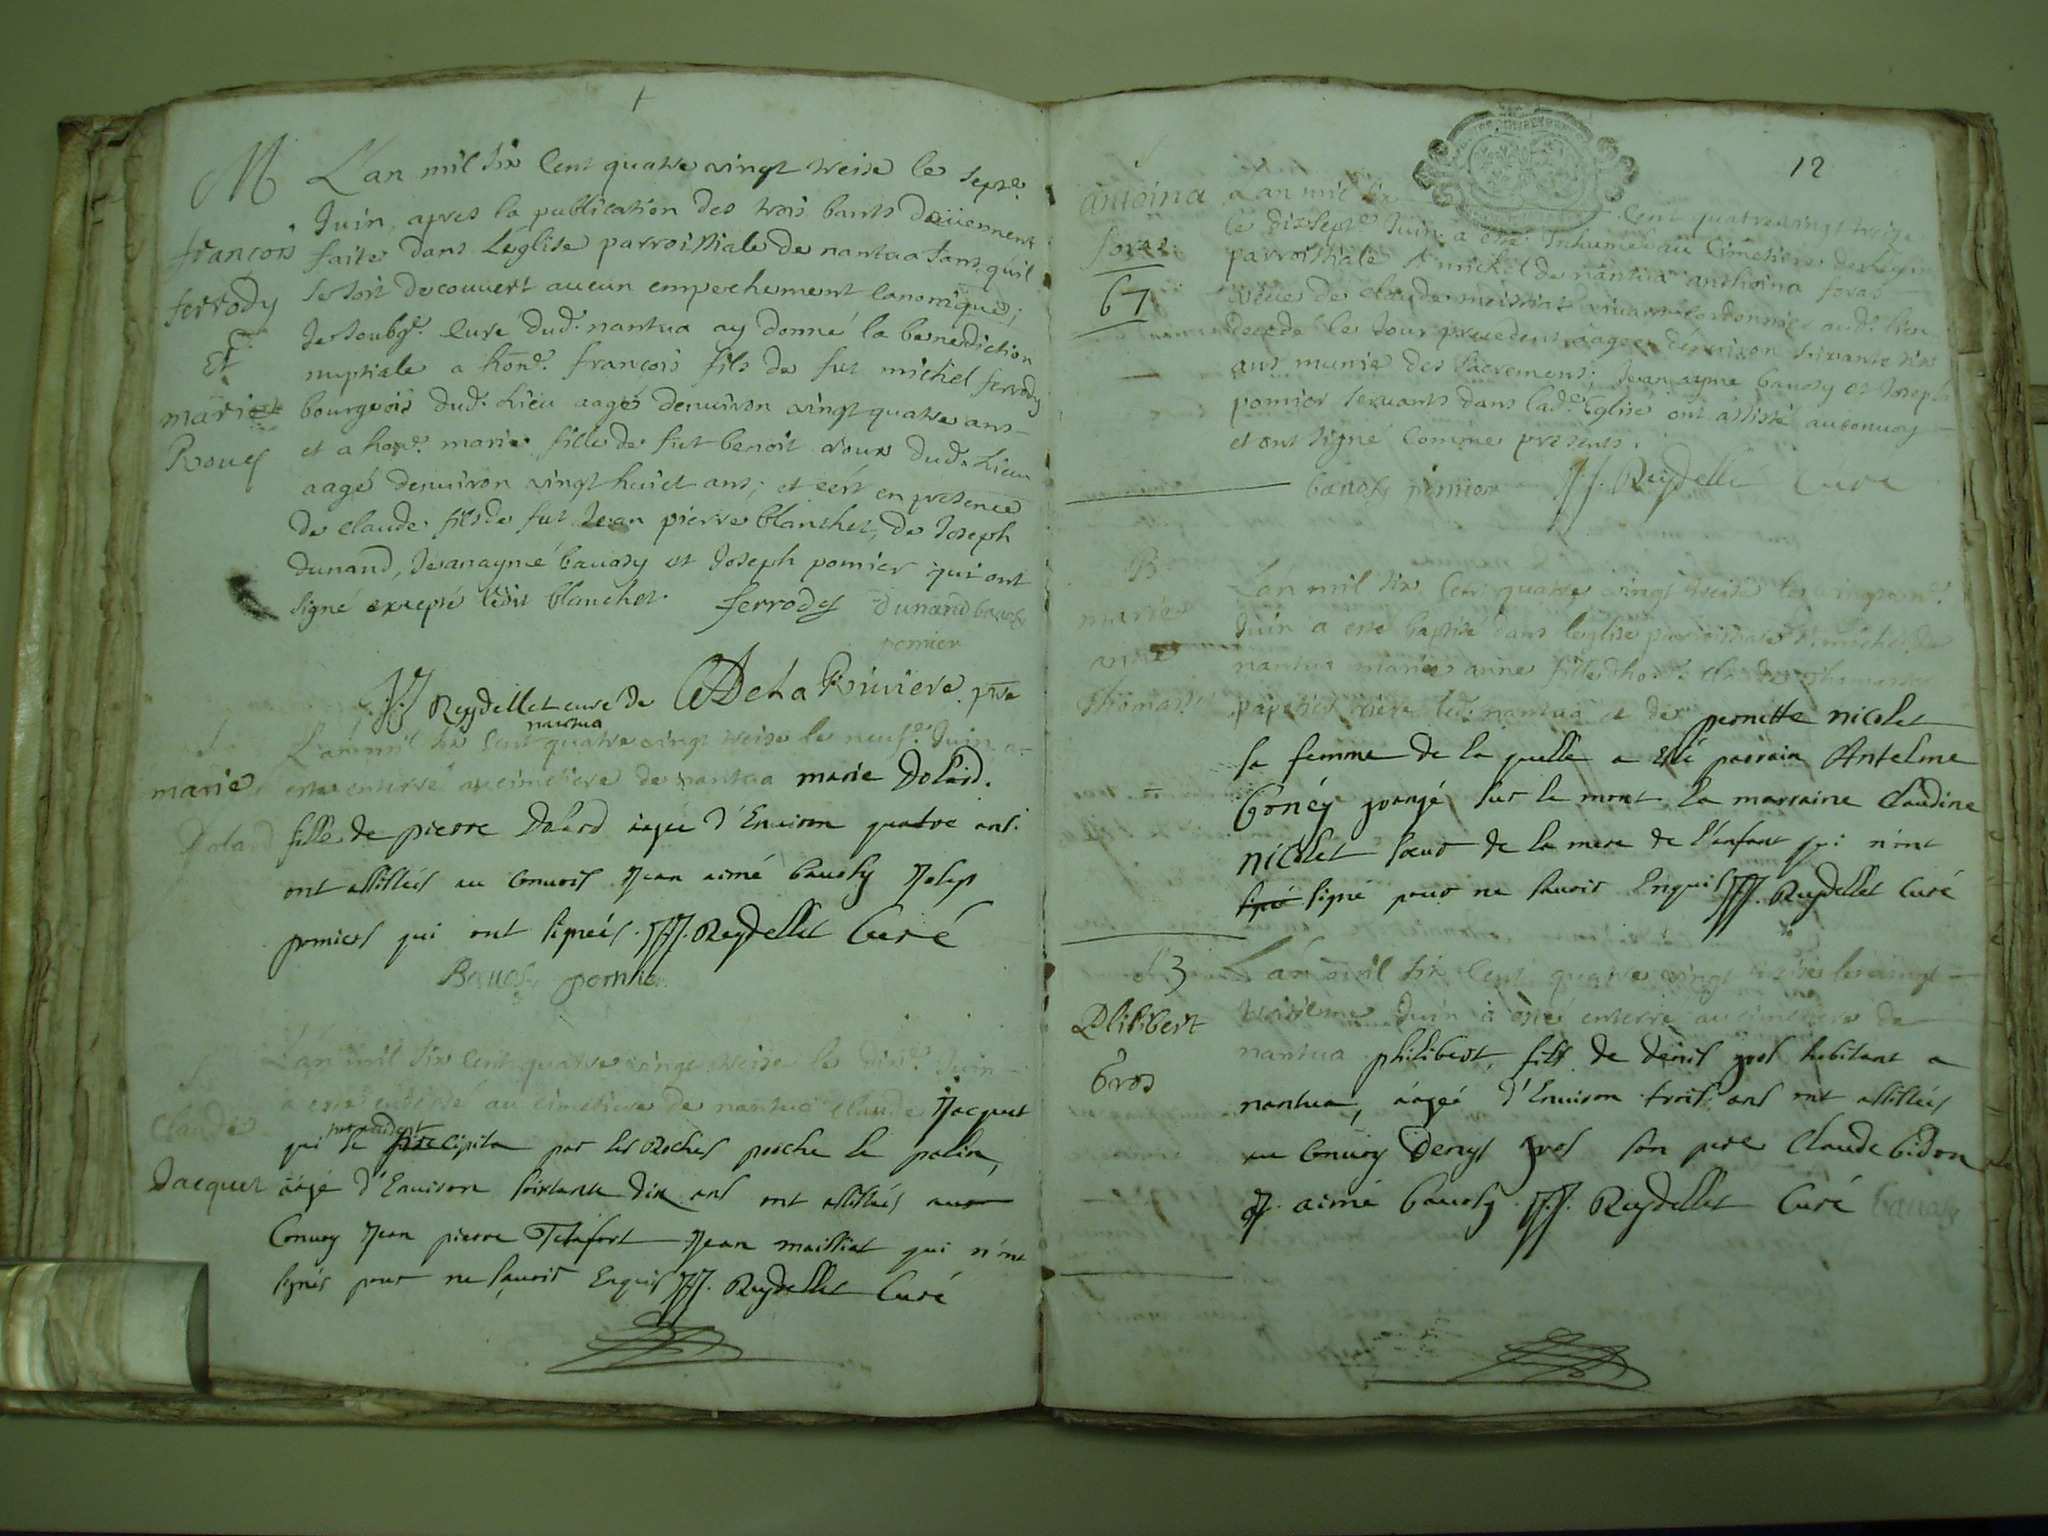 M
françois
ferrody
Et
marie
Roux
L'an mil six cent quatre vingt treise le sept.e
Juin, apres la publication des trois bants deüement
faite dans L'eglise parroissiale de nantua sans qu'il
se soit decouvert aucun empechement canonique;
Je soubg.é Curé dud. nantua ay donné la benediction
nuptiale a hon.e françois fils de fut michel ferrody
bourgeois dud. Lieu aagés denuiron vingt quatre ans
et a hon.e marie fille de fut benoit roux dud. Lieu
aagé denuiron vingt huict ans; et c'est en presence
de claude fils de fut Jean pierre blanchet, de Joseph
dunand, Jeanaymé bauosy et Joseph pomier qui ont
signé excepté ledit blanchet. ferrody Dunand bauosy
pomier
J.J. Reydellet curé de nantua De La Riviere. pre
marie
Dolard
L'an mil six cent quatre vingt treise le neuf.e Juin a
esté enterré au cimetiere de nantua marie Dolard.
fille de pierre Dolard aagée d'Enuiron quatre ans.
ont assistés au Conuois Jean aimé bauosy Josep
pomier qui ont signés. J.J. Reydellet Curé
Bauosy pomier
Claude
Jacquet
L'an mil six cent quatre vingt treise le dix.e Juin
a esté enterré au cimetiere de nantua Claude Jacquet
qui se par accident precipita par les Roches proche le
aagé d'Enuiron soixante dix ans ont assistés au
Conuoy Jean pierre Jean maissiat qui n'ont
signés pour ne sauoir Enquis J.J. Reydellet Curé
12
antoina
foras
67
L'an mil six cent quatre vingt treize
le dixsept.e Juin a esté Inhumée au Cimetiere de
parroissiale S.t michel de nantua anthoina foras
de claude maissiat viuant Cordonnier aud. lieu
decedé le Jour precedent aagée denuiron soixante six
ans munie des sacremens; Jean ayme bauosy et Joseph
pomier seruants dans lad.e Eglise ont assisté au conuoy
et ont signé Comme presents.
bauosy pomier J.J. Reydellet Curé
B
marie
anne
L'an mil six Cent quatre vingt treise le
Juin a esté baptisé dans leglise parroissiale S.t michel de
nantua marie anne fille
nantua et de pernette nicolet
sa femme de la quelle a esté parrain Antelme
sur le mont. la marraine Claudine
nicolet soeur de la mere de l'enfant qui n'ont
signé signé pour ne sauoir Enquis J.J. Reydellet Curé
Plilibert
Gros
L'an mil six Cent quatre vingt treise le vingt
troisieme Juin a esté enterré au cimetiere de
nantua philibert, fils de denis gros habitant a
nantua, aagée d'Enuiron trois ans ont assistés
au Conuoy Denys gros son pere Claude bidon
J. aimé bauosy J.J. Reydellet Curé bauosy